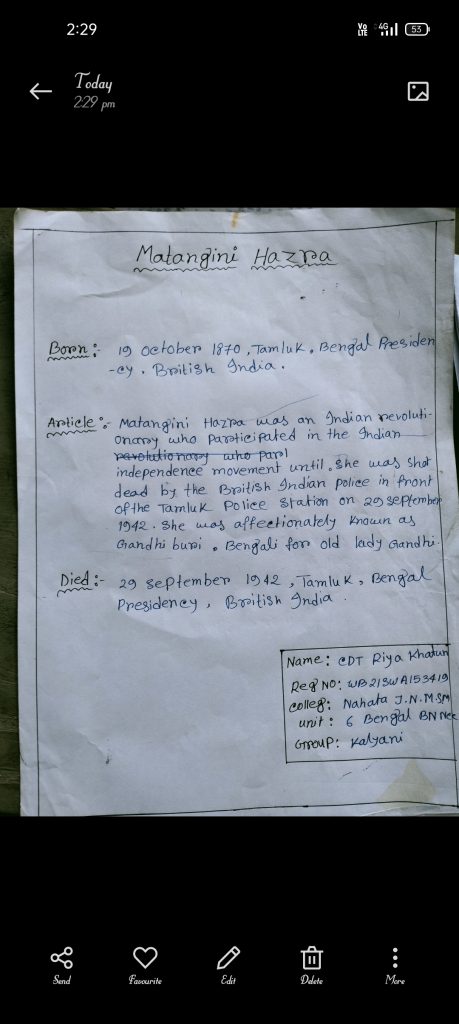 2:29
Vo LTE 4G 53
Today
2:29 pm
Matangini Hazra
Born:- 19 October 1870, Tamluk, Bengal Presiden
-cy. British India.
Article:- Matangini Hazra was an Indian revoluti-
onary who participated in the Indian
ravolutionary who parl
independence movement until, she was shot
dead by the British Indian police in front
of the Tamluk Police Station on 29 September
1942. She was affectionately known as
Gandhi buri, Bengali for old lady Gandhi.
Died:- 29 September 1942, Tamluk, Bengal
Presidency, British India.
Name: CDT Riya Khatun
Reg No: WB21SWA153419
Colleg: Nahata J.N.M.S.M
unit: 6 Bengal BN Ncc
Group: Kalyani
Send Favourite Edit Delete More